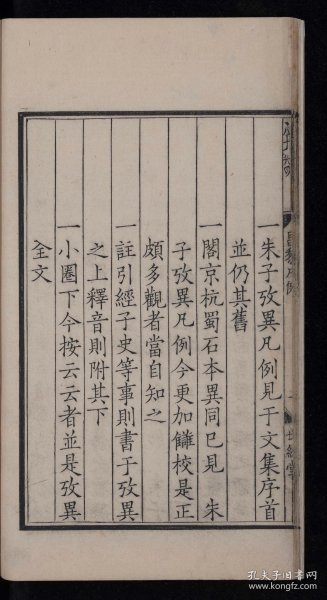 一朱子攷異凡例見于文集序首
並仍其舊
一閣京杭蜀石本異同已見 朱
子攷異凡例今更加讎校是正
頗多觀者當自知之
一註引經子史等事則書于攷異
之上釋音則附其下
一小圈下今按云云者並是攷異
全文
孔夫子旧书网
www.kongfz.com